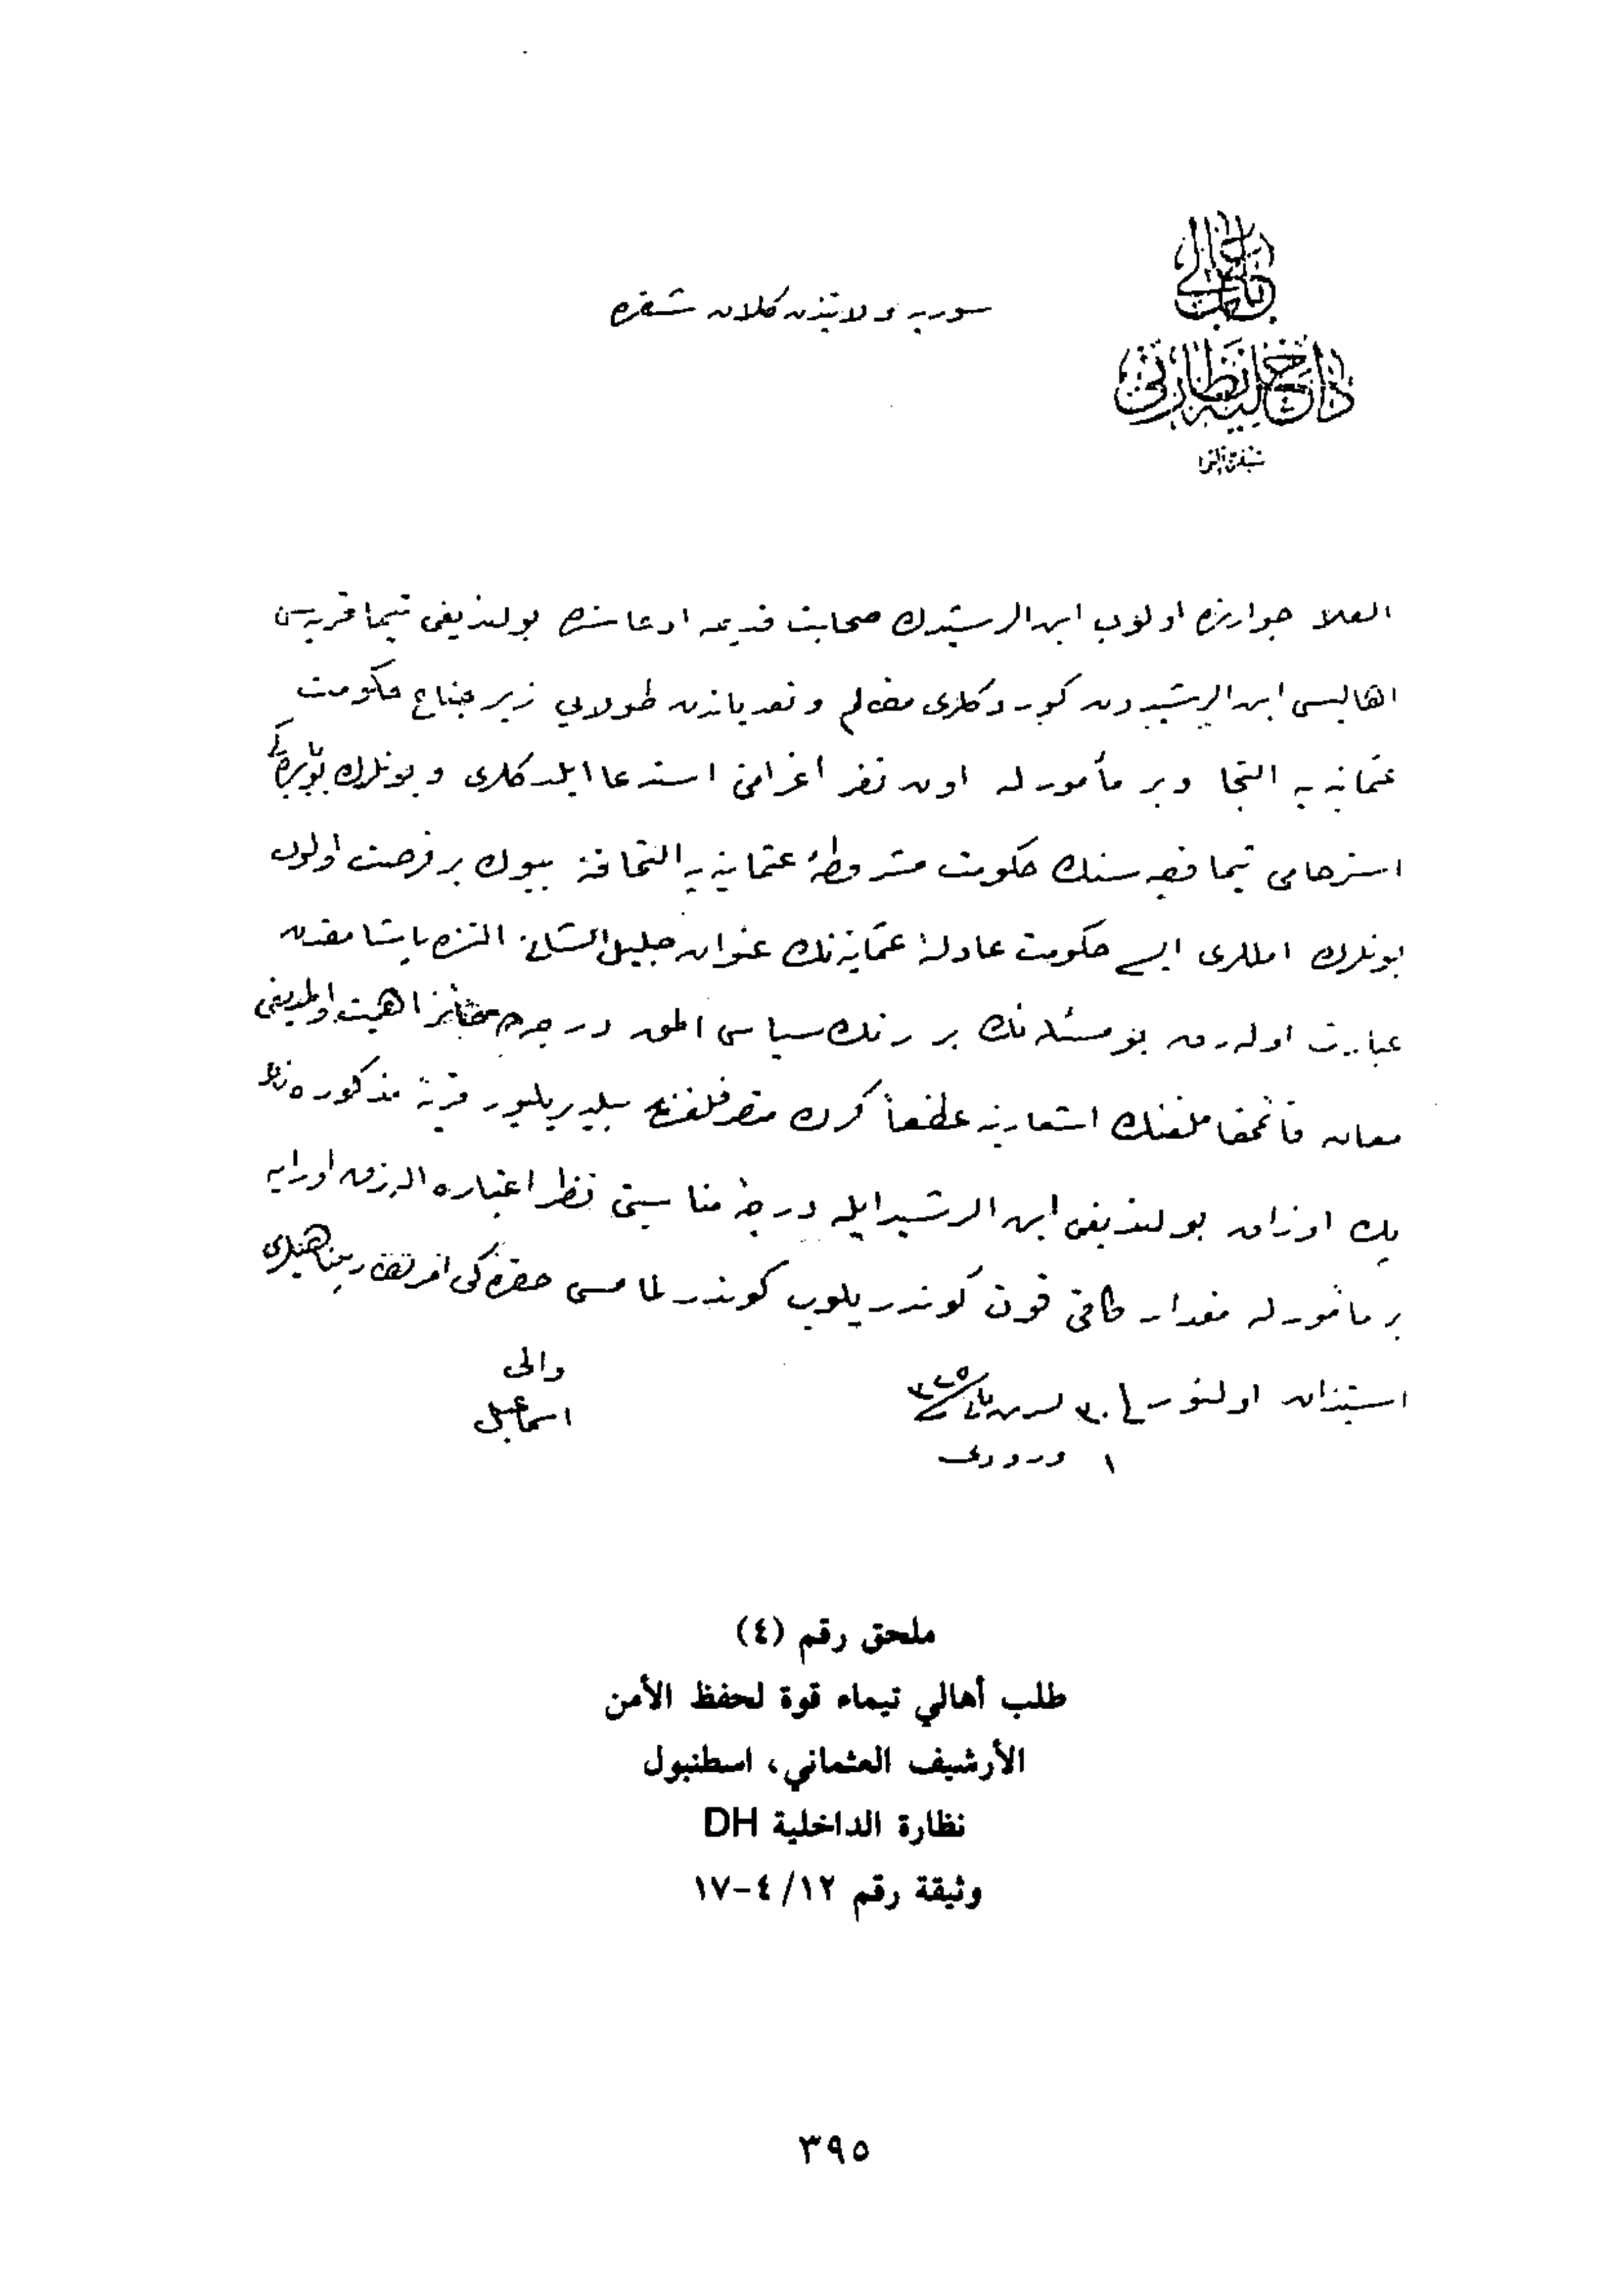 باب عالی
داخلیه نظارتی
سوریه ولایتندن کلان شفره
العلا جوارنده اولوب ابن الرشیدك صحابت قدیمه ادعاسنده بولندیغی تیما قریه سی
اهالیسی ابن الرشیددن کوردکلری مظالم و تعدیاتدن طولایی زیر جناح حکومت
عثمانیه یه التجا وبر مأمورله اون نفر اعزامنی استدعا ایلدکلری و بونلرك
استرحامی تیما قصبه سنك حکومت مشروطۀ عثمانیه یه التحاقنه بیوك بر فرصت اولوب
بونلرك امللری ایسه حکومت عادلۀ عثمانیه نك عنوان جلیل الشانی التنده یاشامقدن
عبارت اوله رق بو مسئله نك بر رنك سیاسی المق درجه سنده حائز اهمیت اولدیغی
معان قائمقاملغنك اشعارینه عطفاً کرك متصرفلغندن بیلدیریلیور قریۀ مذکوره نك
پك اوزاق بولندیغی ابن الرشید ایله درجۀ مناسبتی نظر اعتباره الەرق اورایه
بر مأمورله مقدار کافی قوت کوندریلوب کوندرلمامسی حقنده کی امر نظارتپناهیلری
استیذان اولنور فی ٣٠ مارت سنه ٣٢٥
١ ورودی
والی
اسماعیل
ملحق رقم (٤)
طلب أهالي تيماء قوة لحفظ الأمن
الأرشيف العثماني، اسطنبول
نظارة الداخلية DH
وثيقة رقم ١٢/٤-١٧
٣٩٥